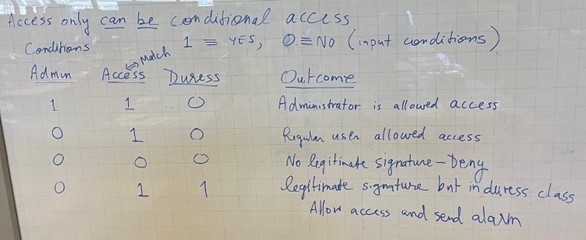 Access only can be conditional access
Conditions 1 ≡ YES, 0 ≡ No (input conditions)
Match
Admin Access Duress Outcome
1 1 0 Administrator is allowed access
0 1 0 Regular user allowed access
0 0 0 No legitimate signature – Deny
0 1 1 legitimate signature but in duress class
Allow access and send alarm